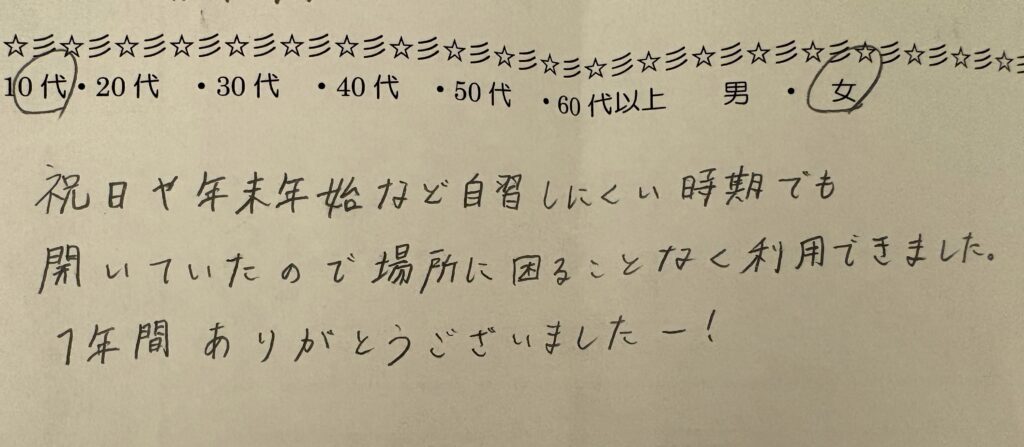 ☆彡☆彡☆彡☆彡☆彡☆彡☆彡☆彡☆彡☆彡☆彡☆彡☆彡☆彡☆彡☆彡☆彡☆彡☆彡
10代・20代 ・30代 ・40代 ・50代 ・60代以上 男 ・ 女
祝日や年末年始など自習しにくい時期でも
開いていたので場所に困ることなく利用できました。
1年間 ありがとうございましたー!